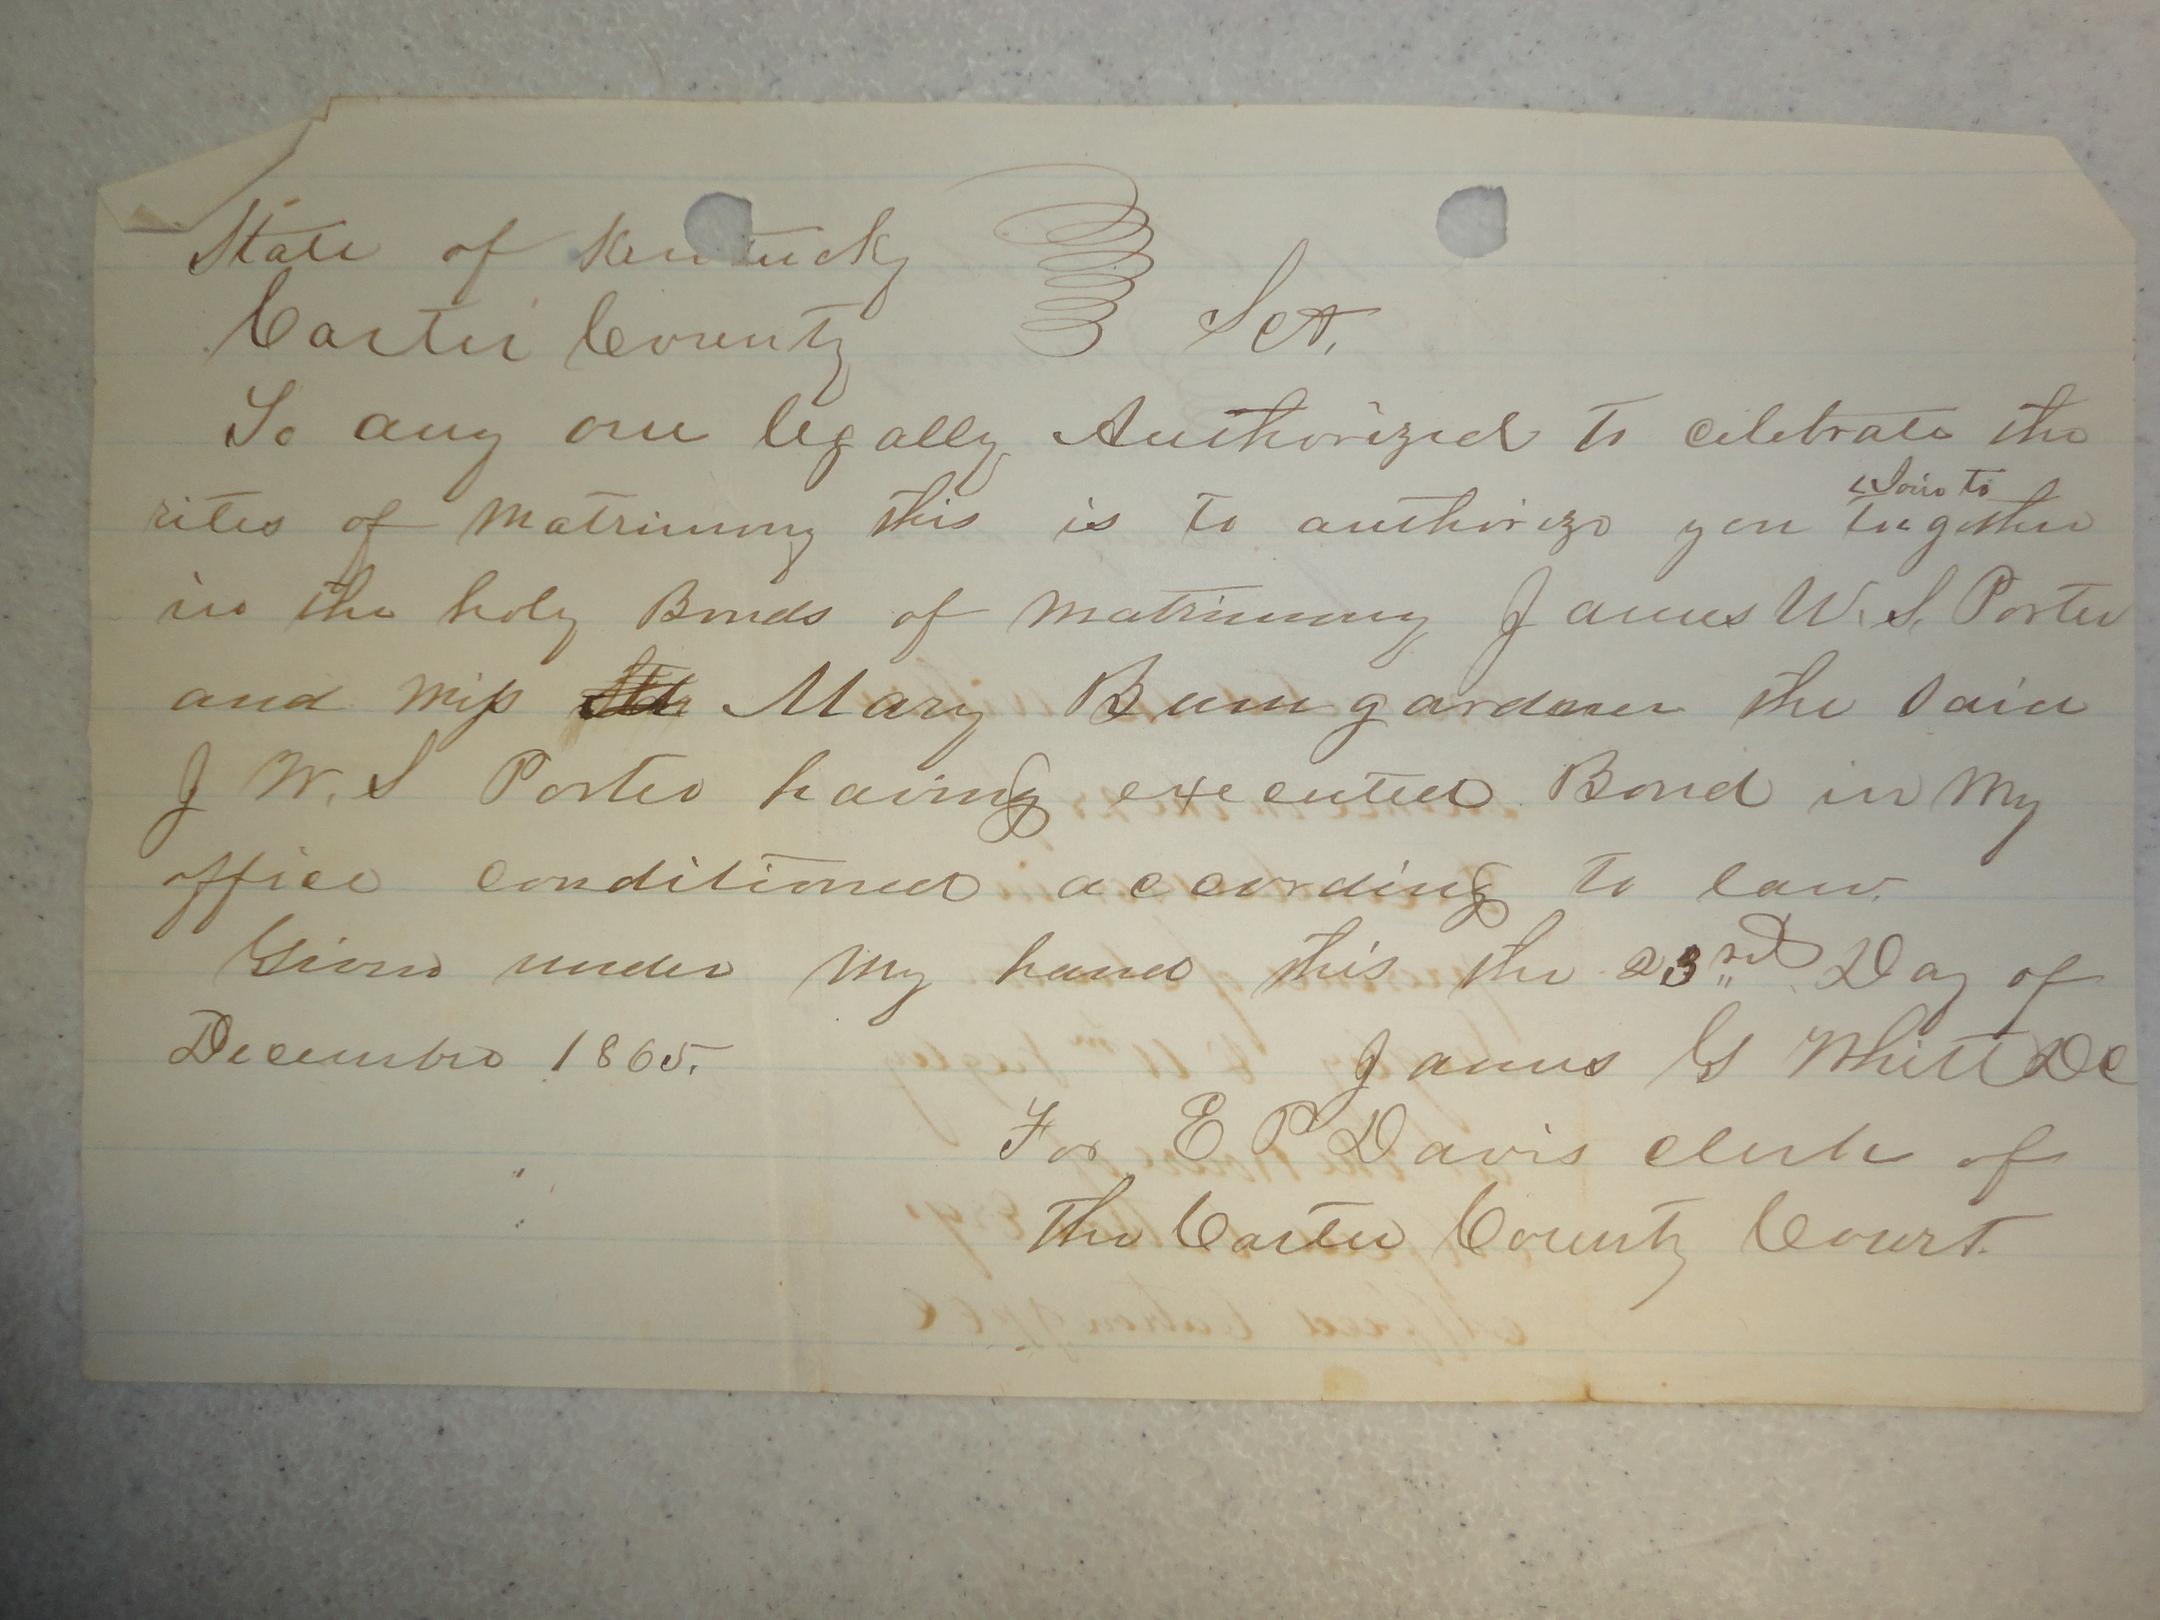 State of Kentucky
Carter County Sct.
To any one legally Authorized to celebrate the
rites of Matrimony this is to authorize you together
Join to
in the holy Bonds of Matrimony James W. S. Porter
and Miss Mary Bumgardner the said
J W. S Porter having executed Bond in My
office conditioned according to law.
Given under My hand this the 23rd Day of
December 1865.
James G Whitt DC
For E P Davis clerk of
the Carter County Court.